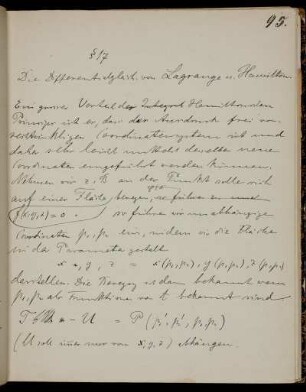 95.
§17
Die Differentialgleich. von Lagrange u. Hamilton
Ein grosser Vortheil des Hamiltonschen
Prinzips ist es, dass der Ausdruck frei von
Coordinatensystem ist und
daher sehr leicht mittelst desselben neue
Coordinaten eingeführt werden können.
Nehmen wir z. B. an der Punkt solle sich
auf einer Fläche bewegen, so führen
f(x,y,z)=0. so führen wir unabhängige
Coordinaten p₁, p₂ ein, indem wir die Fläche
in der Parametergestalt
x, y, z = x(p₁,p₂), y(p₁,p₂), z(p₁,p₂)
darstellen. Die Bewegung ist dann bekannt wenn
p₁, p₂ als Funktionen von t bekannt sind
T - U = P(p₁', p₂', p₁, p₂)
(U soll nur von x, y, z) abhängen.